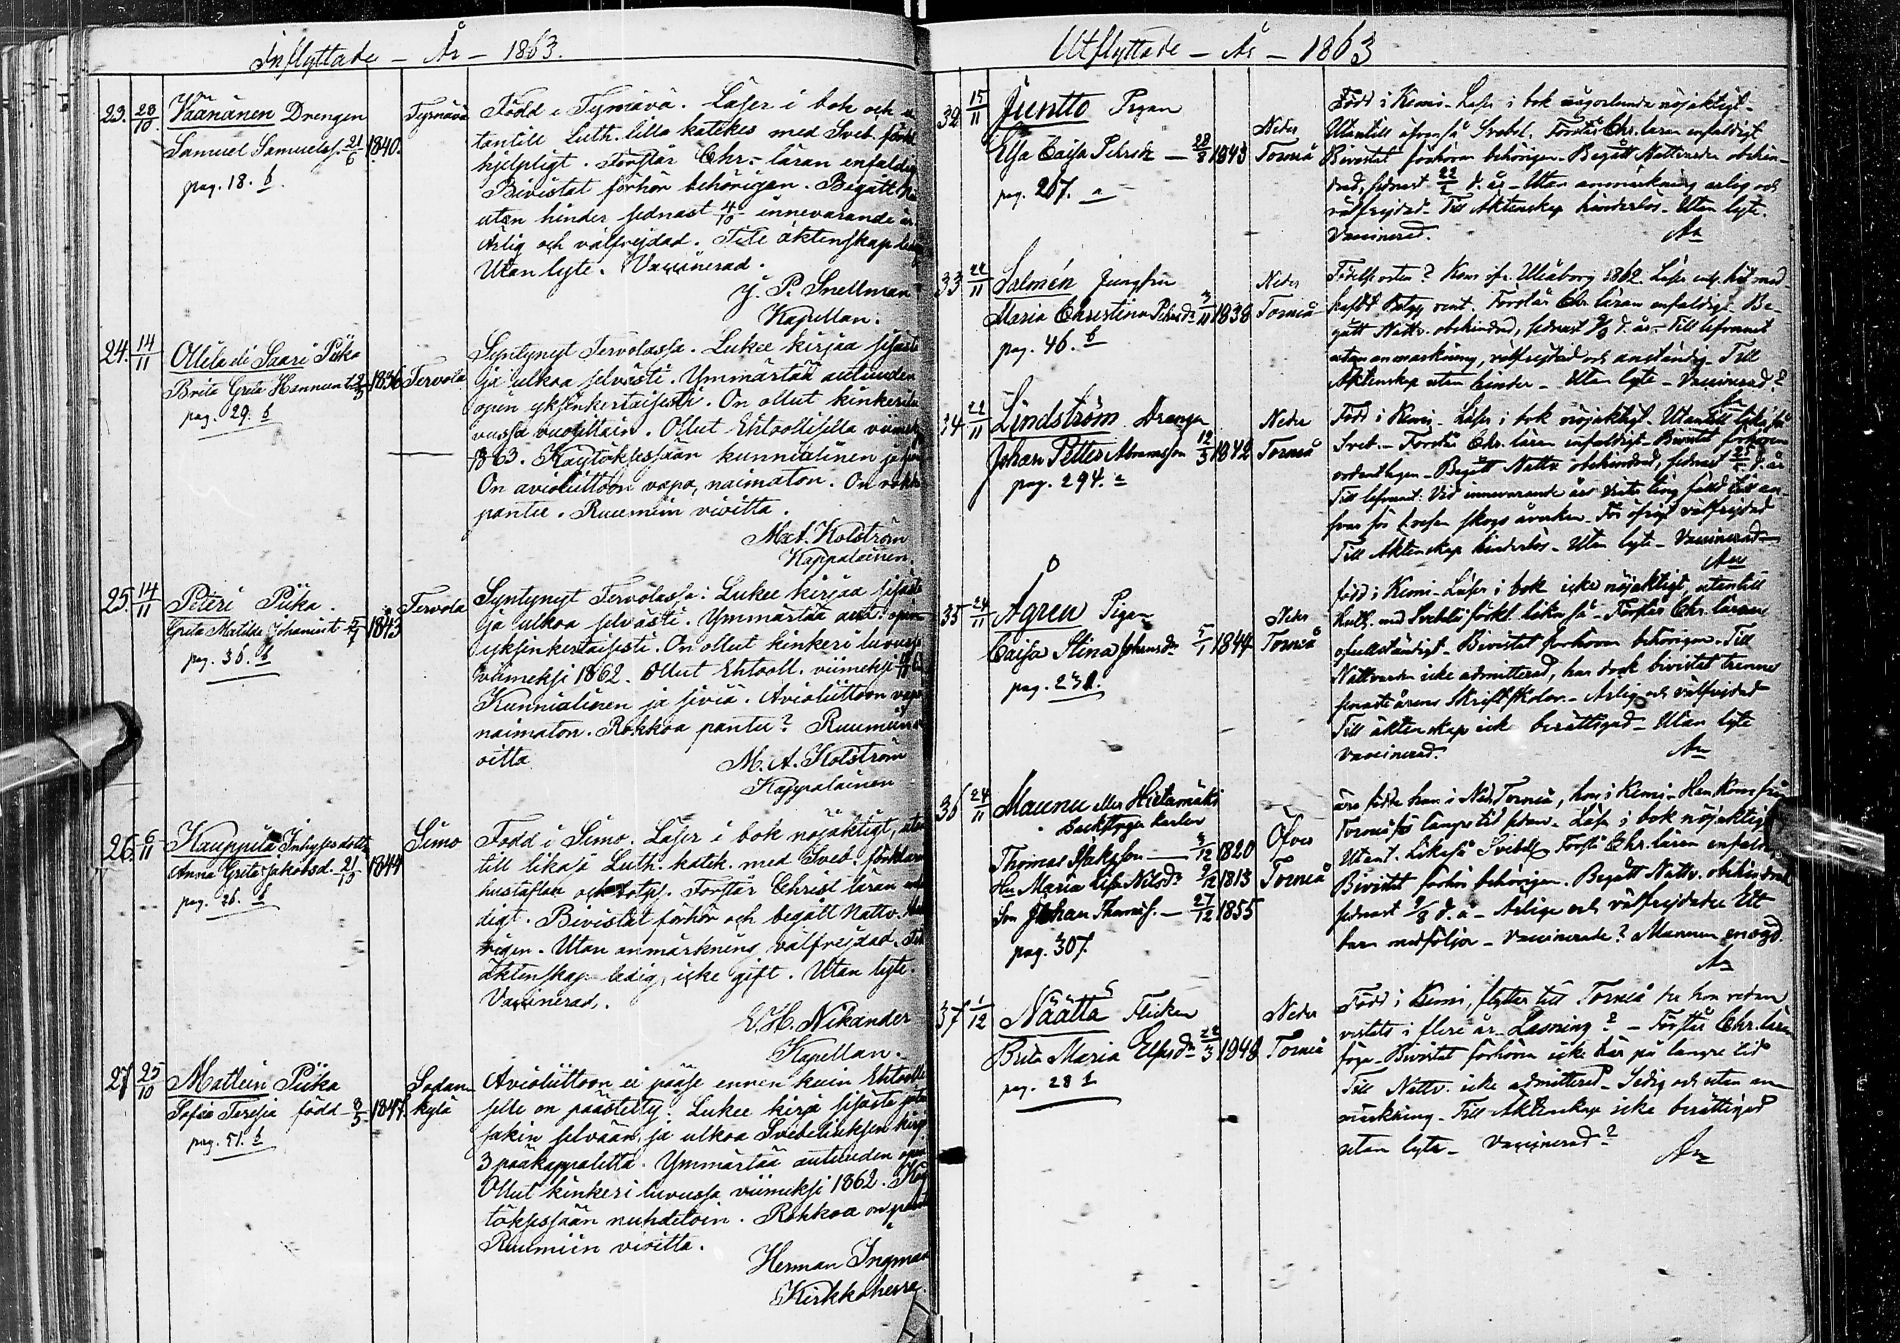 Inflyttade – År – 1863.
23. 28/10 Väänänen Drengen
Samuel Samuelss. 21/6 1840.
pag. 18. b.
Tyrnävä
Född i Tyrnävä. Läser i bok och u
tantill Luth. lilla katekes med Sveb. förkl.
hjelpligt. Förstår Chr. läran enfaldig
Bivistat förhör behörigen. Begått
utan hinder sednast 4/10 innevarande år
Ärlig och välfrejdad. Till äktenskap ledig
Utan lyte. Vaccinerad.
J. P. Snellman
Kapellan.
24. 14/11 Ollila eli Saari Piika
Brita Greta Hannunt. 1836
pag. 29. b
Tervola
Syntynyt Tervolassa. Lukee kirjaa sisästä
ja ulkoa selvästi. Ymmärtää autuuden
opin yksinkertaisesti. On ollut kinkeri
vussa vuosittain. Ollut Ehtoollisella viimeksi
1863. Käytöksessään kunniallinen ja
On avioliittoon vapa, naimaton. On rokko
pantu. Ruumiin vioitta.
M. A. Holström
Kappalainen
25. 14/11 Peteri Piika.
Greta Matilda Johanint. 1843
pag. 36. b
Tervola
Syntynyt Tervolassa: Lukee kirjaa sisästä
ja ulkoa selvästi. Ymmärtää aut. opin
yksinkertaisesti. On ollut kinkeri luvussa
viimeksi 1862. Ollut Ehtooll. viimeksi
Kunniallinen ja siviä. Avioliittoon vapa
naimaton. Rokkoa pantu? Ruumiin
oitta
M. A. Holström
Kappalainen
26. 6/11 Kauppila Inhyses dott.
Anna Greta Jakobsd. 21/10 1844
pag. 26. b
Simo
Född i Simo. Läser i bok nöjaktigt, utan
till likaså Luth. katek. med Sveb. förklar
hustaflan och Förstår Christ. läran
digt. Bivistat förhör och begått Nattv.
rigen. Utan anmärkning välfrejdad. Till
äktenskap ledig, icke gift. Utan lyte.
Vaccinerad.
E. H. Nikander
Kapellan.
27 25/10 Matlein Piika
Sofia Teresia född 8/5 1847.
pag. 51. b
Sodan
kylä
Avioliittoon ei pääse ennen kuin Ehtoolli
selle on päästetty. Lukee kirja sisästä
selvään, ja ulkoa Svebeliuksen kirj.
3 pääkappaletta. Ymmärtää autuuden opin
Ollut kinkeri luvussa viimeksi 1862. Käy
töksessään nuhdetoin. Rokkoa on pantu
Ruumiin vioitta.
Herman Ingman
Kirkkoherra.
Utflyttade – År – 1863
32 15/11 Juntto Pigan
Elsa Caisa Pehrsdr – 28/8 1843
pag. 207. a
Neder
Torneå
Född i Kemi. Läser i bok någorlunda nöjaktigt.
Utantill äfvenså Svebel. Förstår Chr. läran enfaldigt
Bivistat förhören behörigen. Begått Nattvarden obehin
drad, sednast 22/2 d. år. Utan anmärkning ärlig och
välfrejdad. Till Äktenskap hinderlös. Utan lyte.
Vaccinerad.
33 22/11 Salmén Jungfru
Maria Christina Pehrsdr 3/11 1838
pag. 46. b
Neder
Torneå
Födelseorten? Kom ifr. Uleåborg 1862. Läser
Förstår Chr. läran enfaldigt. Be
gått Nattv. obehindrad, sednast d. år. Till lefvernet
utan anmärkning, välfrejdad och anständig. Till
Äktenskap utan hinder – Utan lyte – Vaccinerad?
34 22/11 Lindström Drengen
Johan Petter Abramsson 12/3 1842
pag. 294. a
Neder
Torneå
Född i Kemi. Läser i bok nöjaktigt. Utantill
Sveb. – Förstår Chr. läran enfaldigt. Bivistat förhören
ordentligen. Begått Nattv. obehindrad, sednast d. år
Till lefvernet: Vid innevarande års ting
skogs åverkan. För öfrigt välfrejdad
Till Äktenskap hinderlös. Utan lyte. Vaccinerad
35 24/11 Ågren Pigan
Caisa Stina Johansdr 5/1 1844
pag. 231.
Neder
Torneå
född i Kemi. Läser i bok icke nöjaktigt utantill
med Svebelii förkl. lika så. Förstår Chr. läran
ofullständigt. Bivistat förhören behörigen. Till
Nattvarden icke admitterad, har dock bivistat
årens Skriftskolor. Ärlig och välfrejdad
Till äktenskap icke berättigad – Utan lyte
vaccinerad.
36 24/11 Maunu eller Hietamäki
Backstugu karlen
Thomas Isaksson – 1820
Hu Maria Lisa Nilsdr 1813
Son Johan Thomass. – 27/12 1855
pag. 307.
Öfver
Torneå
äro födde han i Ned. Torneå, hon i Kemi. Hon kom från
Torneå för längre tid sedan. Läser i bok nöjaktigt
Utant. likaså Svibel. Förstå Chr. läran enfaldigt
Bivistat förhör behörigen. Begått Nattv. obehindrad
sednast 9/8 d. å – Ärliga och välfrejdade Ett
barn medföljer – Vaccinerade? Mannen
37 1/12 Näätta Flickan
Brita Maria Elfsdr 22/3 1948
pag. 28
Neder
Torneå
Född i Kemi, flyttar till Torneå der hon redan
vistats i flere år. Läsning? – Förstår Chr. läran
föga. Bivistat förhören icke här på längre tid
Till Nattv. icke admitterad. Ledig och utan an
märkning. Till Äktenskap icke berättigad
utan lyte – Vaccinerad?